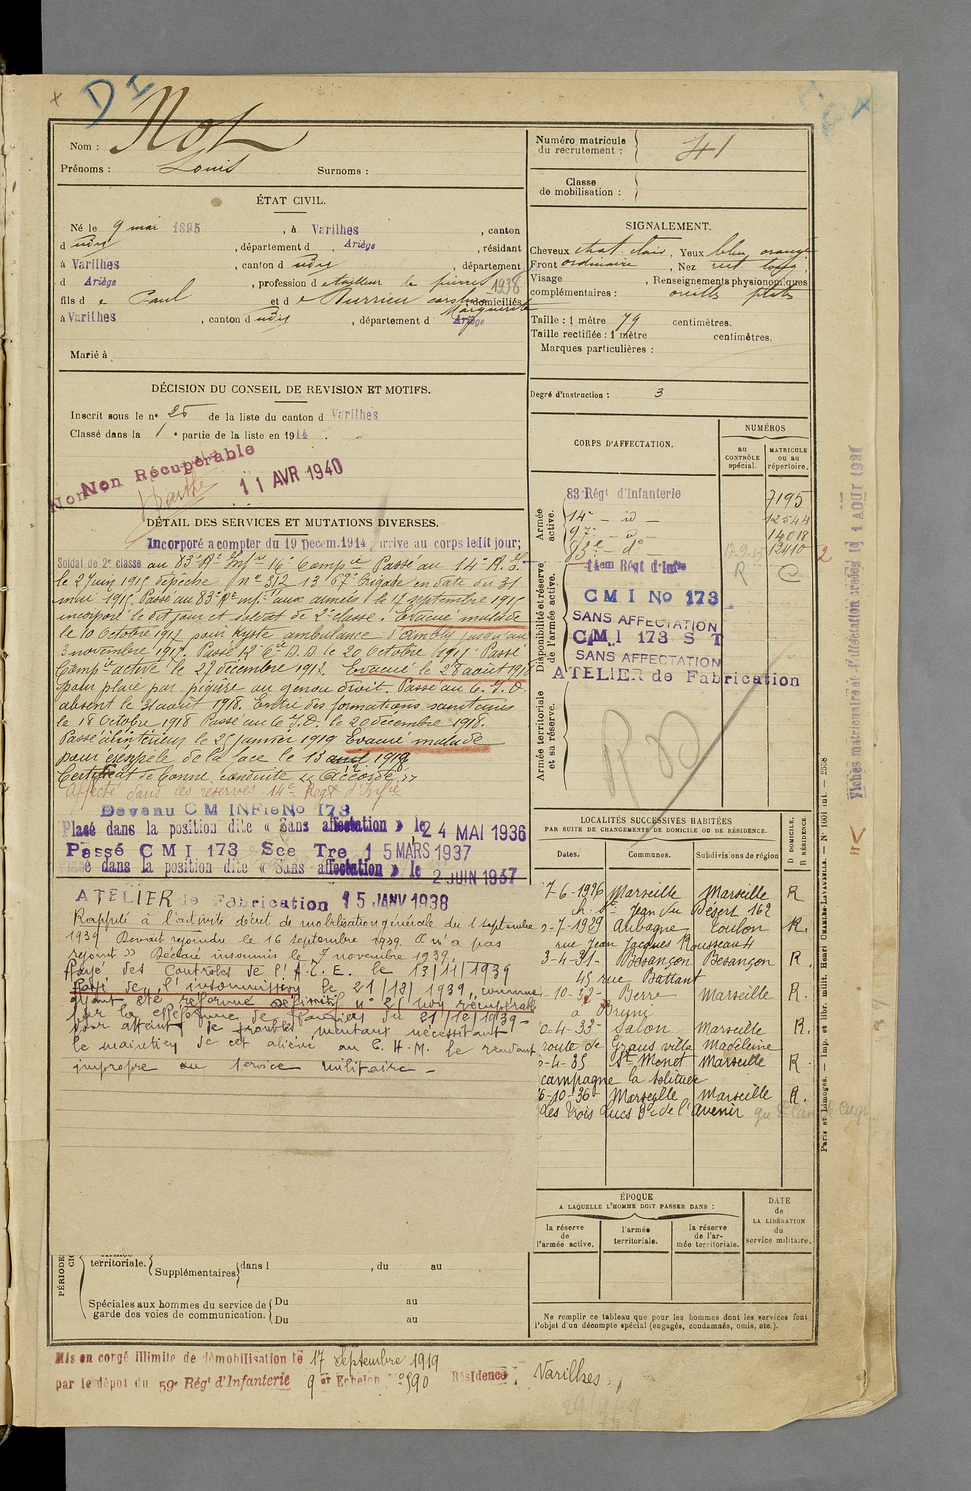 DI
Nom : Not
Prénoms : Louis Surnoms :
Numéro matricule du recrutement : 41
Classe de mobilisation :
ÉTAT CIVIL.
Né le 9 mai 1895, à Varilhes, canton
d udit, département d Ariège, résidant
à Varilhes, canton d udit, département
d Ariège, profession d tailleur de pierres 1938
fils de Paul et de Murrieu Marguerite domiciliés
à Varilhes, canton d udit, département d Ariège
Marié à
SIGNALEMENT.
Cheveux chat clair, Yeux bleu orangé
Front ordinaire, Nez rect. long
Visage , Renseignements physionomiques
complémentaires : oreilles plates
Taille : 1 mètre 79 centimètres.
Taille rectifiée : 1 mètre centimètres.
Marques particulières :
Degré d'instruction : 3
DÉCISION DU CONSEIL DE REVISION ET MOTIFS.
Inscrit sous le n° 25 de la liste du canton d Varilhes
Classé dans la 1e partie de la liste en 1914.
Non Non Récupérable
11 AVR 1940
DÉTAIL DES SERVICES ET MUTATIONS DIVERSES.
Incorporé a compter du 19 Decem. 1914, arrive au corps ledit jour;
Soldat de 2e classe au 83e Rt Infie 16e Compie Passé au 14e R. I.
le 2 juin 1915 dépêche (n° 312 13 67e Brigade en date du 31
mai 1915. Passé au 83e Rt infie aux armées le 17 septembre 1915
incorporé le dit jour et soldat de 2e classe. Evacué malade
le 10 octobre 1917 pour kyste ambulance d'Ambly jusqu'au
3 novembre 1917. Passé 12e Cie D.D le 20 octobre 1917. Passé
Compie active le 27 décembre 1917. Evacué le 28 août 1918
pour plaie par piqûre au genou droit. Passé au C. I. D.
absent le 31 août 1918. Entré des formations sanitaires
le 18 octobre 1918 Passé au C. I. D. le 20 décembre 1918.
Passé à l'intérieur le 25 janvier 1919 Evacué malade
pour érésipèle de la face le 13 avril 1919
Certificat de bonne conduite « Accordé »
Affecté dans les réserves 14e Régt d'Infie
Devenu C M INFie No 173
Placé dans la position dite « Sans affectation » le 24 MAI 1936
Passé C M I 173 Sce Tre 15 MARS 1937
Placé dans la position dite « Sans affectation » le 2 JUIN 1937
ATELIER de Fabrication 15 JANV 1938
Rappelé à l'activité décret de mobilisation générale du 1 septembre
1939 Devait rejoindre le 16 septembre 1939. Il n'a pas
rejoint » Déclaré insoumis le 7 novembre 1939.
Rayé des Controles de l'A.C.E. le 13/11/1939
Rayé de l'insoumission le 21/12/1939, comme
ayant été réformé définitif n° 2 (non récupérable
par la Cion de réforme de du 21/12/1939
pour atteint de troubles mentaux nécessitant
le maintien de cet aliéné au C. H. M. le rendant
impropre au service militaire -
CORPS D'AFFECTATION.
NUMÉROS
AU CONTRÔLE spécial.
MATRICULE ou au répertoire.
Armée active.
83e Régt d'Infanterie 7195
14e — id — 12544
9e — id — 14018
83e — do — 17-9-15 12410 2
Disponibilité et réserve de l'armée active.
14em Régt d'Infie R C
C M I No 173
SANS AFFECTATION
C M I 173 S T
SANS AFFECTATION
ATELIER de Fabrication
Armée territoriale et sa réserve.
LOCALITÉS SUCCESSIVES HABITÉES
PAR SUITE DE CHANGEMENTS DE DOMICILE OU DE RÉSIDENCE.
Dates. Communes. Subdivisions de région D DOMICILE, R RÉSIDENCE.
7-6-1926 Marseille Marseille R
ch. St Jean du Désert 162
-7-1929 Aubagne Toulon R.
rue Jean Jacques Rousseau 4
3-4-31- Besançon Besançon R.
45 rue Battant
-10-32- Berre Marseille R.
à Bruni
-4-33- Salon Marseille R.
route de Grans villa Madeleine
-4-35 St Menet Marseille R.
campagne la solitude
6-10-36- Marseille Marseille R.
des trois Lucs Bd de l'avenir
ÉPOQUE
A LAQUELLE L'HOMME DOIT PASSER DANS :
la réserve de l'armée active.
l'armée territoriale.
la réserve de l'armée territoriale.
DATE de LA LIBÉRATION du service militaire.
Ne remplir ce tableau que pour les hommes dont les services font
l'objet d'un décompte spécial (engagés, condamnés, omis, etc.).
territoriale. Supplémentaires dans l , du au
Spéciales aux hommes du service de garde des voies de communication. Du au
Du au
Mis en congé illimité de démobilisation le 17 Septembre 1919
par le dépôt du 59e Régt d'Infanterie 9e Echelon n° 590 Résidence : Varilhes
Paris et Limoges. — Imp. et libr. milit. Henri CHARLES-LAVAUZELLE. — N° 1001 int. — 2538
Fiches matriculaire et d'affectation créées le 1 AOUT 1931